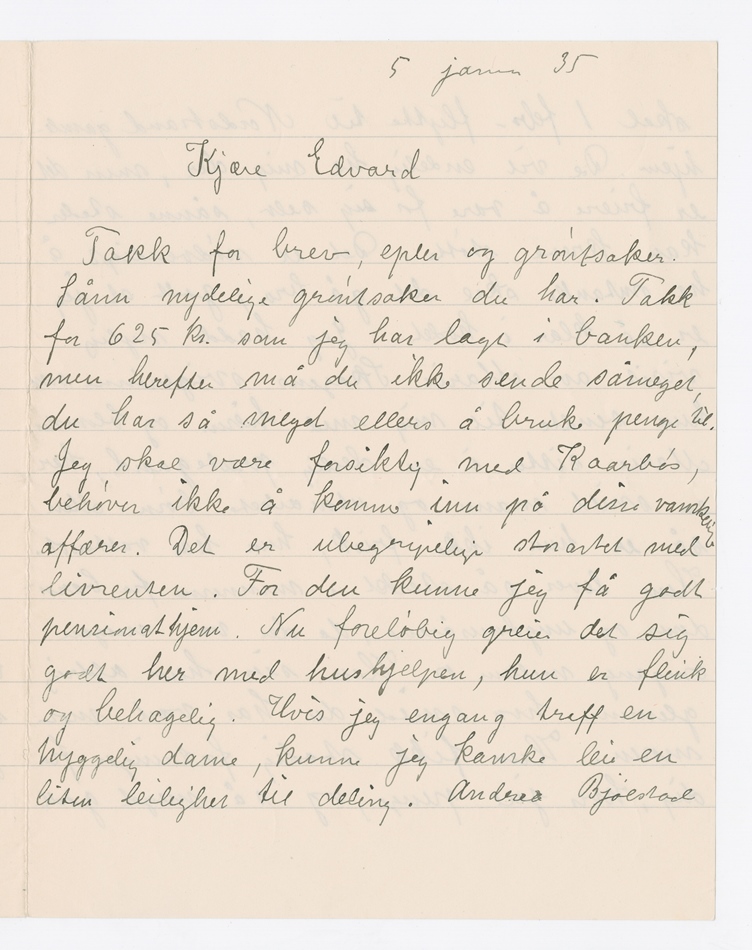 5 januar 35
Kjære Edvard
Takk for brev, epler og grøntsaker.
Sånn nydelige grøntsaker du har. Takk
for 625 kr. som jeg har lagt i banken,
men herefter må du ikke sende såmeget,
du har så meget ellers å bruke penge til.
Jeg skal være forsiktig med Kaarbøs,
behøver ikke å komme inn på disse vanskelige
affærer. Det er ubegripelig storartet med
livrenten. For den kunne jeg få godt
pensionathjem. Nu foreløbig greier det sig
godt her med hushjelpen, hun er flink
og behagelig. Hvis jeg engang treff en
hyggelig dame, kunne jeg kanske leie en
liten leilighet til deling. Andrea Bjølstad